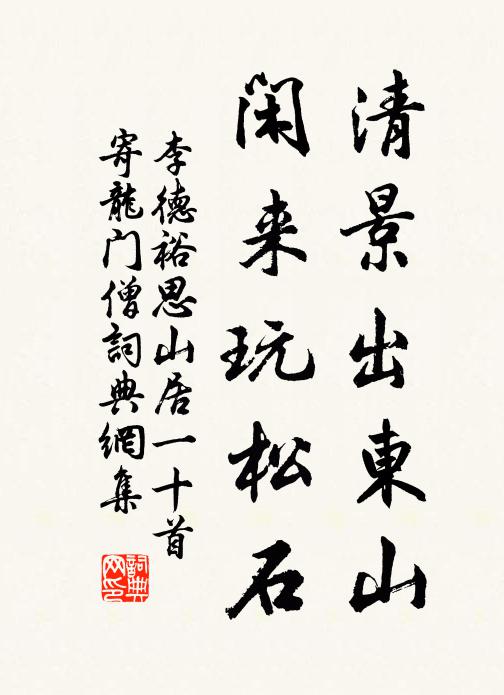 清景出東山
閑来玩松石
李德裕思山居一十首
寄龍门僧詞典網集
詞典
网印